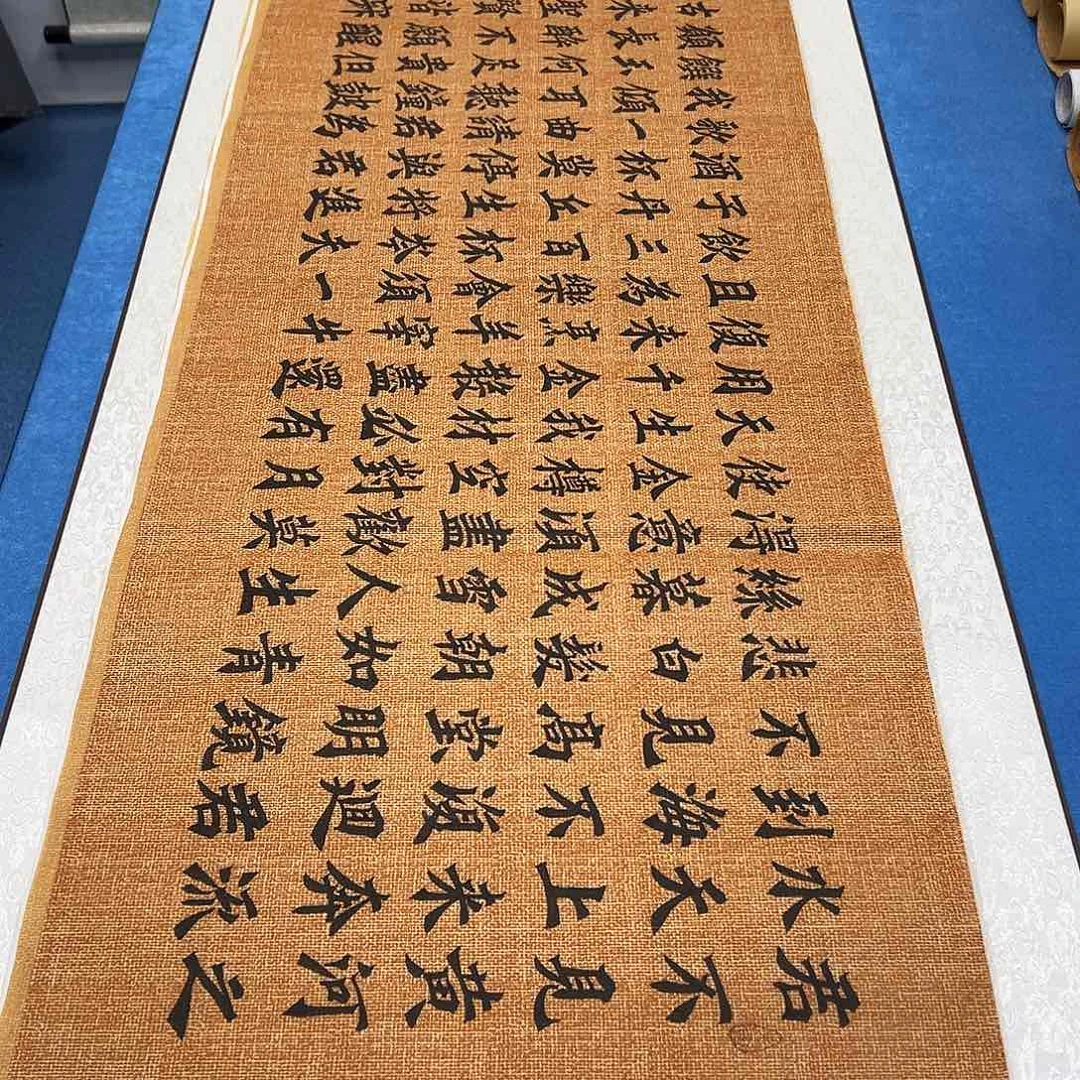 君不見黃河之
水天上來奔流
到海不復迴君
不見高堂明鏡
悲白髮朝如青
絲暮成雪人生
得意須盡歡莫
使金樽空對月
天生我材必有
用千金散盡還
復來烹羊宰牛
且為樂會須一
飲三百杯岑夫
子丹丘生將進
酒杯莫停與君
歌一曲請君為
我傾耳聽鐘鼓
饌玉何足貴但
願長醉不願醒
古來聖賢皆寂